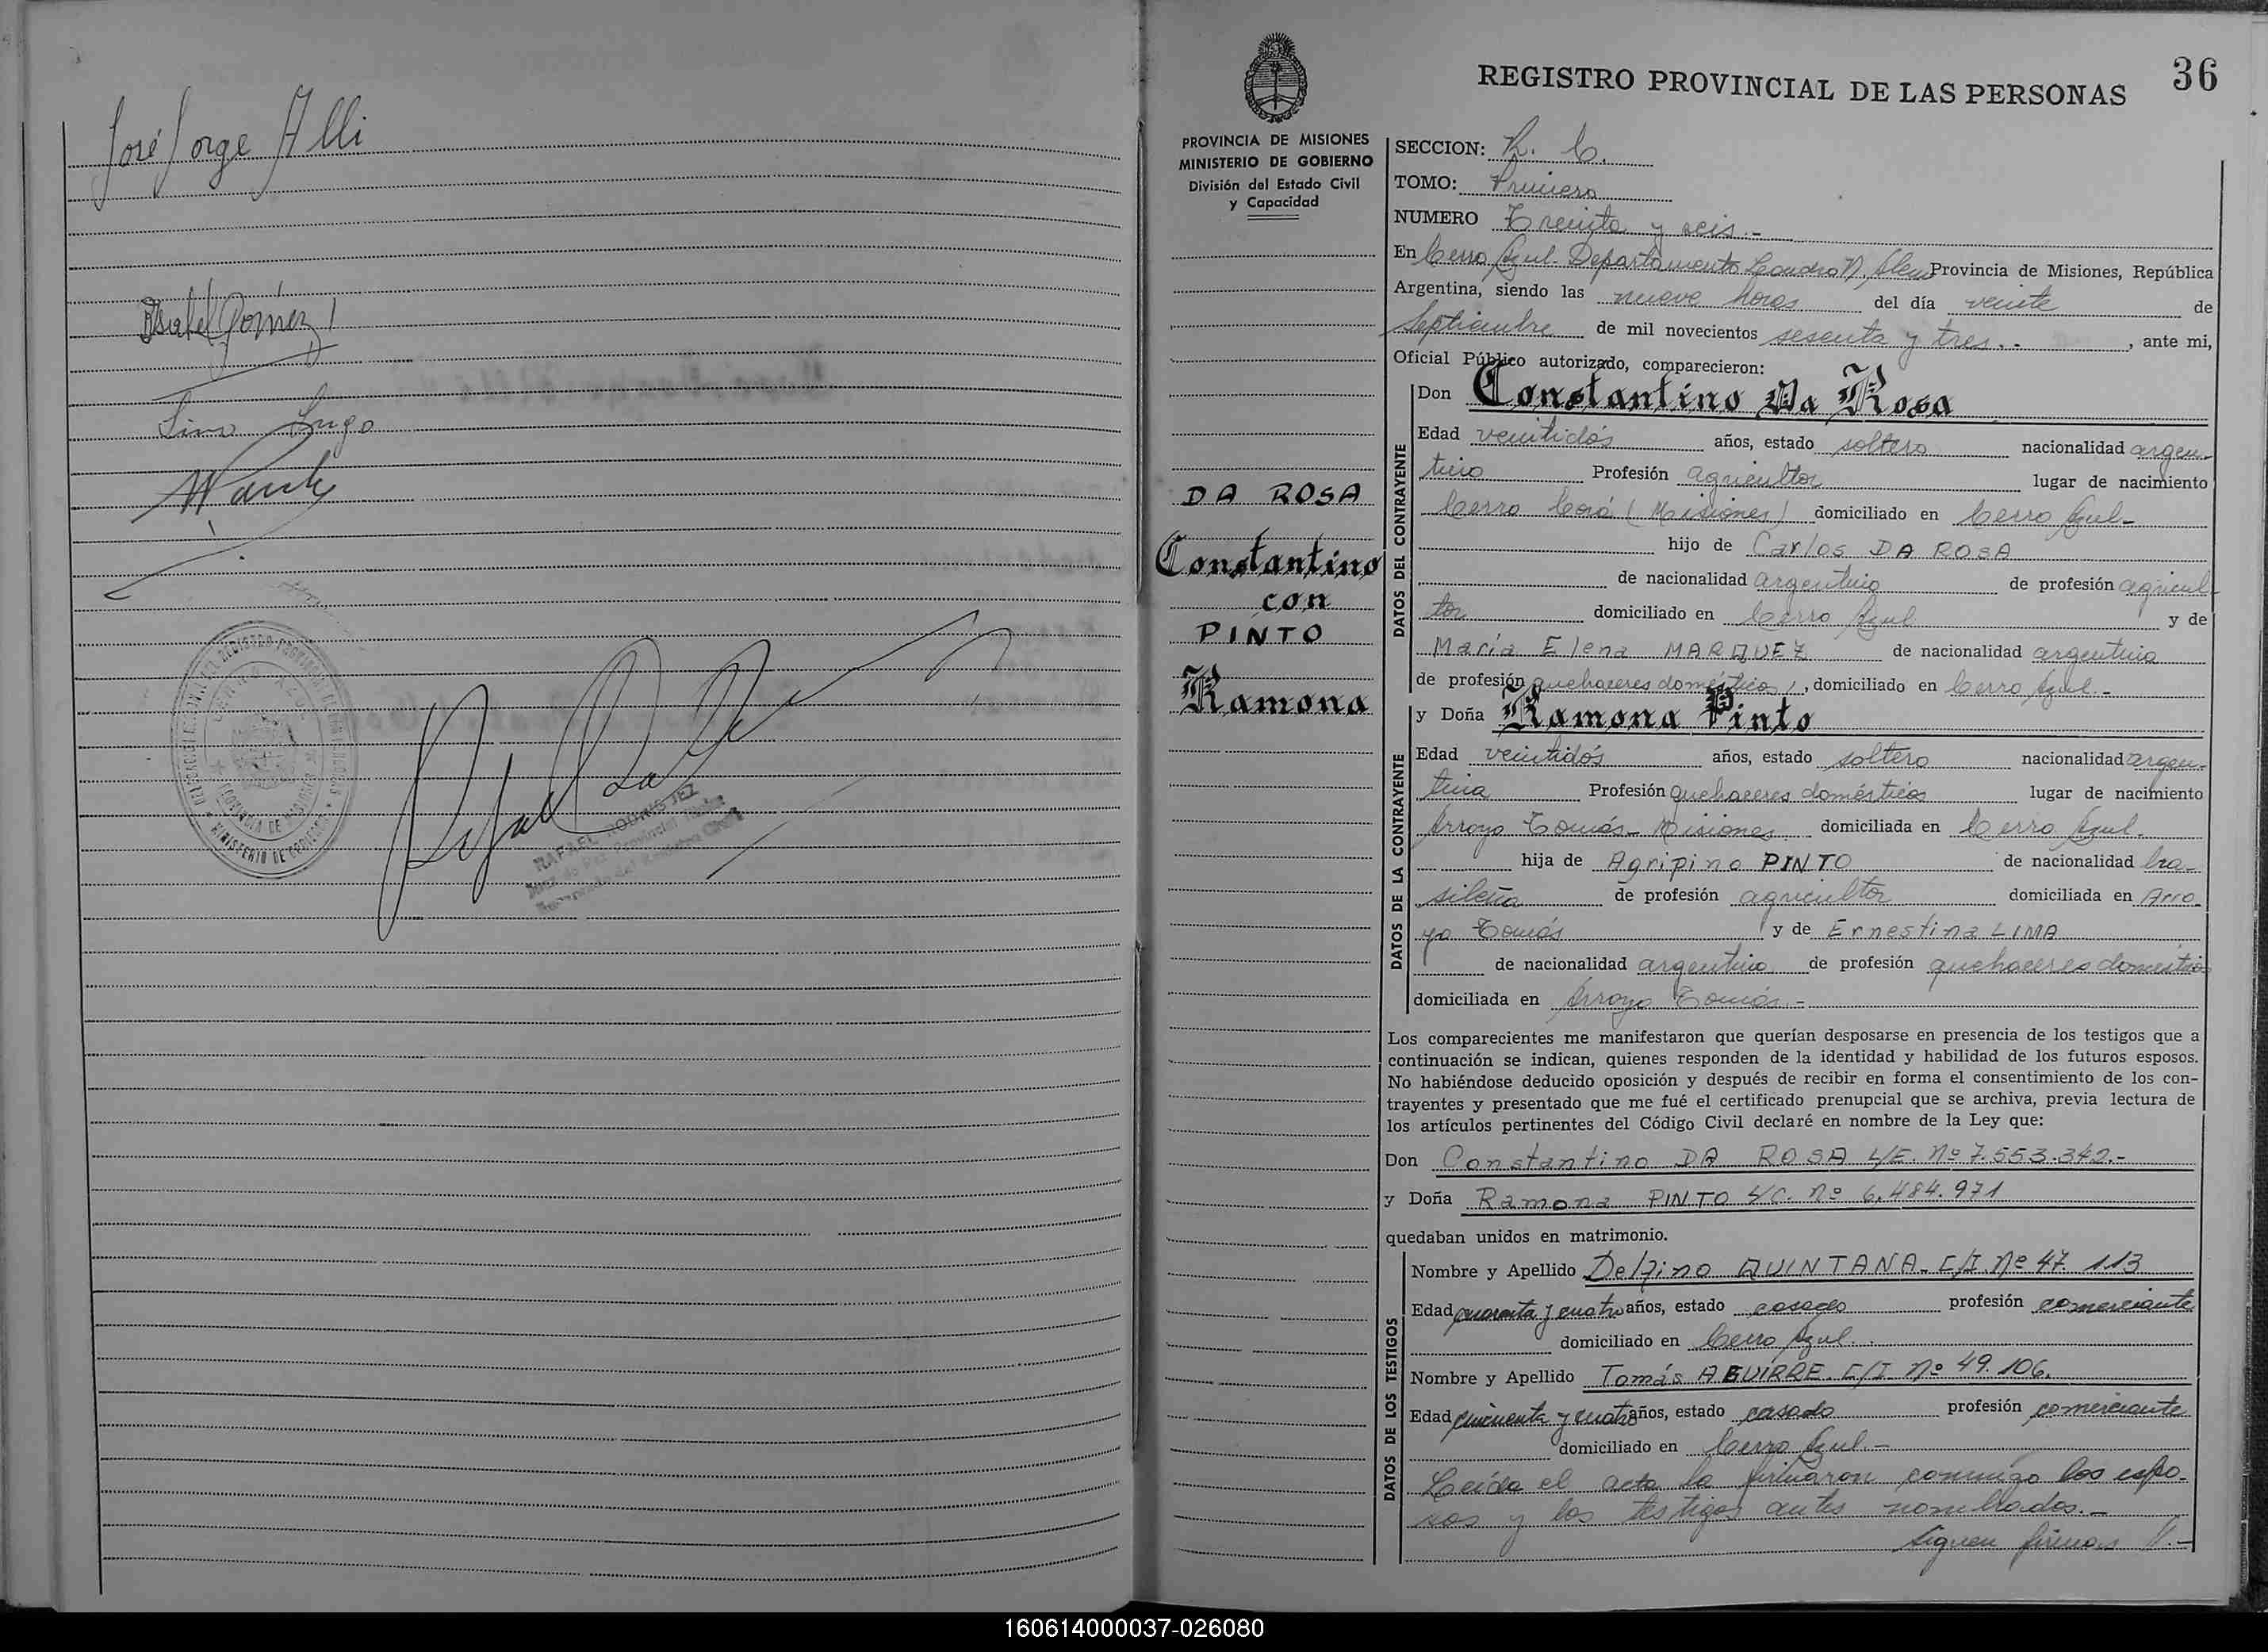 José Jorge Alli
Isabel Gómez
Lino Lugo
REGISTRO PROVINCIAL DE
CERRO AZUL
PROVINCIA DE MISIONES
MINISTERIO DE GOBIERNO
RAFAEL
Juez de Paz
36
REGISTRO PROVINCIAL DE LAS PERSONAS
PROVINCIA DE MISIONES
MINISTERIO DE GOBIERNO
División del Estado Civil
y Capacidad
DA ROSA
Constantino
con
PINTO
Ramona
SECCION: R. C.
TOMO: Primero
NUMERO Treinta y seis.-
En Cerro Azul- Departamento Leandro N. Alem Provincia de Misiones, República
Argentina, siendo las nueve horas del día veinte de
Septiembre de mil novecientos sesenta y tres.- , ante mi,
Oficial Público autorizado, comparecieron:
DATOS DEL CONTRAYENTE
Don Constantino Da Rosa
Edad veintidós años, estado soltero nacionalidad argen-
tina Profesión agricultor lugar de nacimiento
Cerro Corá (Misiones) domiciliado en Cerro Azul-
hijo de Carlos DA ROSA
de nacionalidad argentina de profesión agricul-
tor domiciliado en Cerro Azul y de
María Elena MARQUEZ de nacionalidad argentina
de profesión quehaceres domésticos, domiciliado en Cerro Azul.-
DATOS DE LA CONTRAYENTE
y Doña Ramona Pinto
Edad veintidós años, estado soltera nacionalidad argen-
tina Profesión quehaceres domésticos lugar de nacimiento
Arroyo Tomás- Misiones domiciliada en Cerro Azul.
hija de Agripino PINTO de nacionalidad bra-
sileña de profesión agricultor domiciliada en Arro-
yo Tomás y de Ernestina LIMA
de nacionalidad argentina de profesión quehaceres domésticos
domiciliada en Arroyo Tomás.-
Los comparecientes me manifestaron que querían desposarse en presencia de los testigos que a
continuación se indican, quienes responden de la identidad y habilidad de los futuros esposos.
No habiéndose deducido oposición y después de recibir en forma el consentimiento de los con-
trayentes y presentado que me fué el certificado prenupcial que se archiva, previa lectura de
los artículos pertinentes del Código Civil declaré en nombre de la Ley que:
Don Constantino DA ROSA L/E. Nº 7.553.342.-
y Doña Ramona PINTO L/C. nº 6.484.971
quedaban unidos en matrimonio.
DATOS DE LOS TESTIGOS
Nombre y Apellido Delfino QUINTANA- C/I. Nº 47.113
Edad cuarenta y cuatro años, estado casado profesión comerciante
domiciliado en Cerro Azul.
Nombre y Apellido Tomás AGUIRRE. C/I Nº 49.106.
Edad cincuenta y cuatro años, estado casado profesión comerciante
domiciliado en Cerro Azul.-
Leída el acta la firmaron conmigo los espo-
sos y los testigos antes nombrados.-
Siguen firmas //.-
160614000037-026080